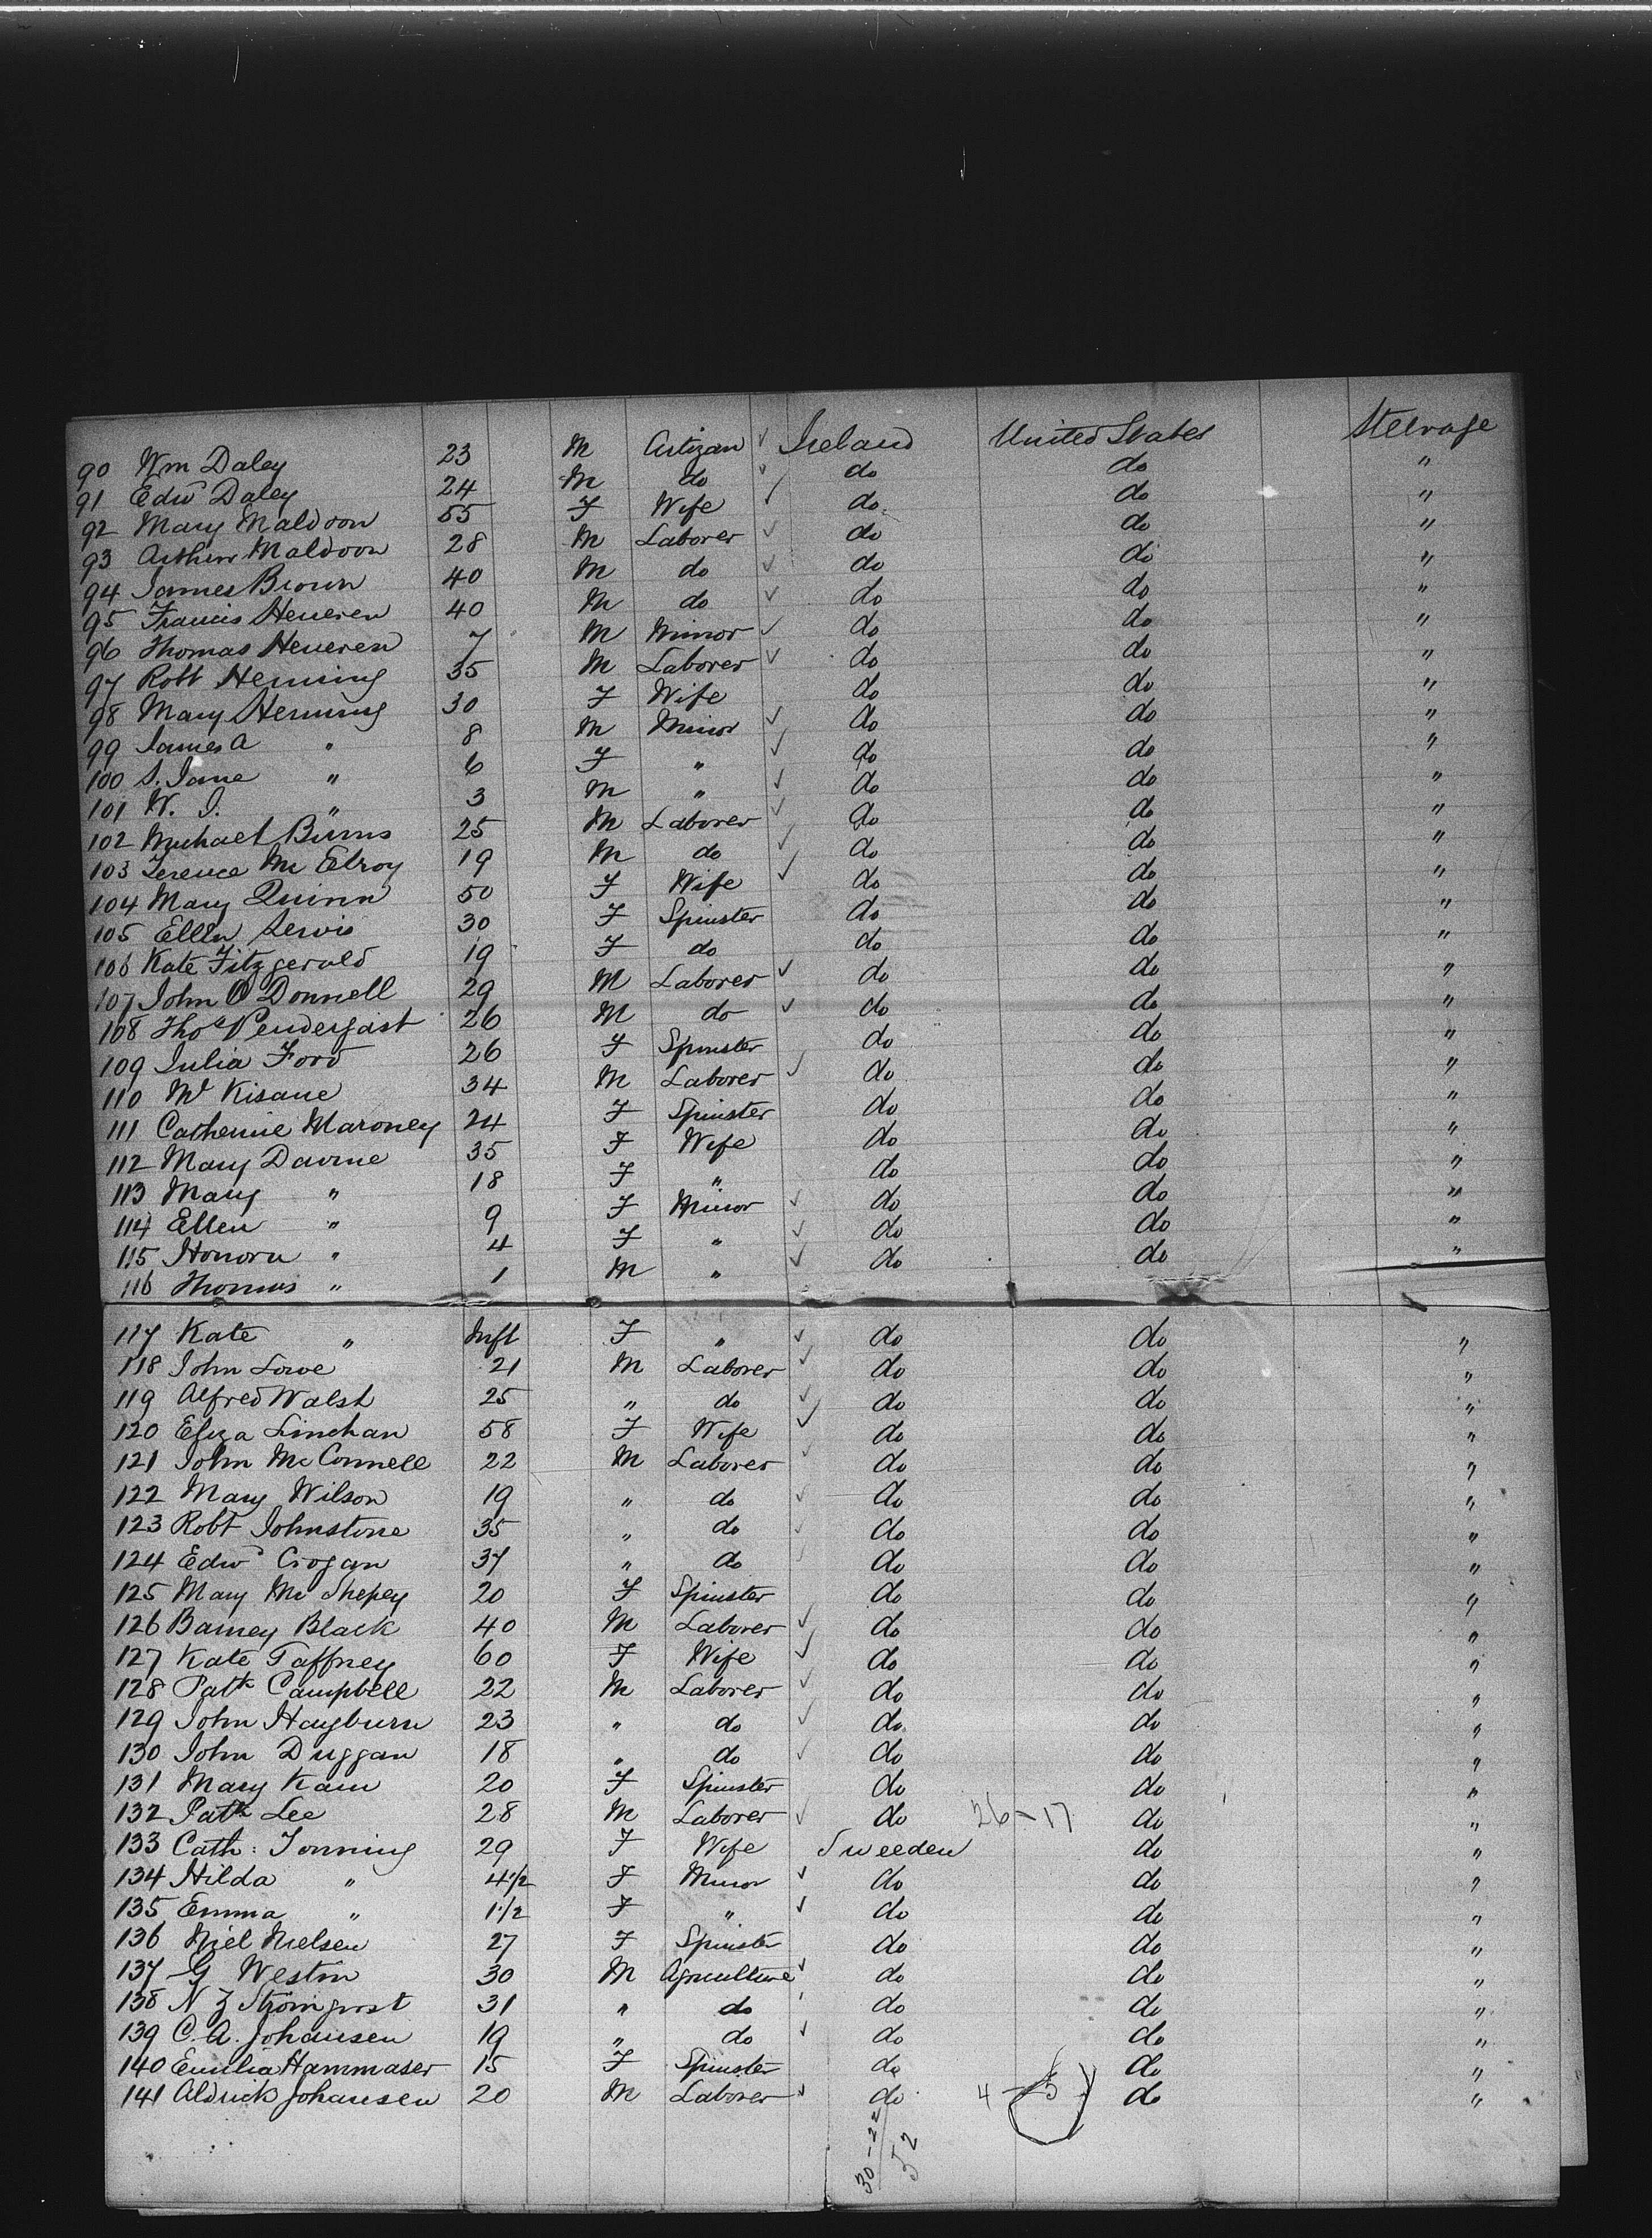 90 Wm Daley 23 M Artizan ✓ Ireland United States Steerage
91 Edwd Daley 24 M do ✓ do do "
92 Mary Maldoon 55 F Wife ✓ do do "
93 Arthur Maldoon 28 M Laborer ✓ do do "
94 James Brown 40 M do ✓ do do "
95 Francis Heueren 40 M do ✓ do do "
96 Thomas Heueren 7 M Minor ✓ do do "
97 Robt Heming 35 M Laborer ✓ do do "
98 Mary Heming 30 F Wife do do "
99 James A " 8 M Minor ✓ do do "
100 S. Jane " 6 F " ✓ do do "
101 W. J. " 3 M " ✓ do do "
102 Michael Burns 25 M Laborer ✓ do do "
103 Terence Mc Elroy 19 M do ✓ do do "
104 Mary Quinn 50 F Wife ✓ do do "
105 Ellen Servis 30 F Spinster do do "
106 Kate Fitzgerald 19 F do do do "
107 John O Donnell 29 M Laborer ✓ do do "
108 Thos Pendergast 26 M do ✓ do do "
109 Julia Ford 26 F Spinster do do "
110 Mr Kisane 34 M Laborer ✓ do do "
111 Catherine Maroney 24 F Spinster do do "
112 Mary Davine 35 F Wife do do "
113 Mary " 18 F " do do "
114 Ellen " 9 F Minor ✓ do do "
115 Honora " 4 F " ✓ do do "
116 Thomas " 1 M " ✓ do do "
117 Kate " Inft F " ✓ do do "
118 John Lowe 21 M Laborer ✓ do do "
119 Alfred Walsh 25 " do ✓ do do "
120 Eliza Linehan 58 F Wife ✓ do do "
121 John McConnell 22 M Laborer ✓ do do "
122 Mary Wilson 19 " do ✓ do do "
123 Robt Johnstone 35 " do ✓ do do "
124 Edwd Crogan 37 " do ✓ do do "
125 Mary Mc Shepey 20 F Spinster do do "
126 Barney Black 40 M Laborer ✓ do do "
127 Kate Gaffney 60 F Wife ✓ do do "
128 Patk Campbell 22 M Laborer ✓ do do "
129 John Hayburn 23 " do ✓ do do "
130 John Duggan 18 " do ✓ do do "
131 Mary Kain 20 F Spinster do do "
132 Patk Lee 28 M Laborer ✓ do 26-17 do "
133 Cath: Tonning 29 F Wife Sweeden do "
134 Hilda " 4 1/2 F Minor ✓ do do "
135 Emma " 1 1/2 F " ✓ do do "
136 Niel Nielsen 27 F Spinster do do "
137 G Westin 30 M Agriculture ✓ do do "
138 N Z 31 " do do do "
139 C. A. Johansen 19 " do ✓ do do "
140 Emilia Hammaser 15 F Spinster do do "
141 Aldrick Johansen 20 M Laborer ✓ do 4-5 do "
30-22
52